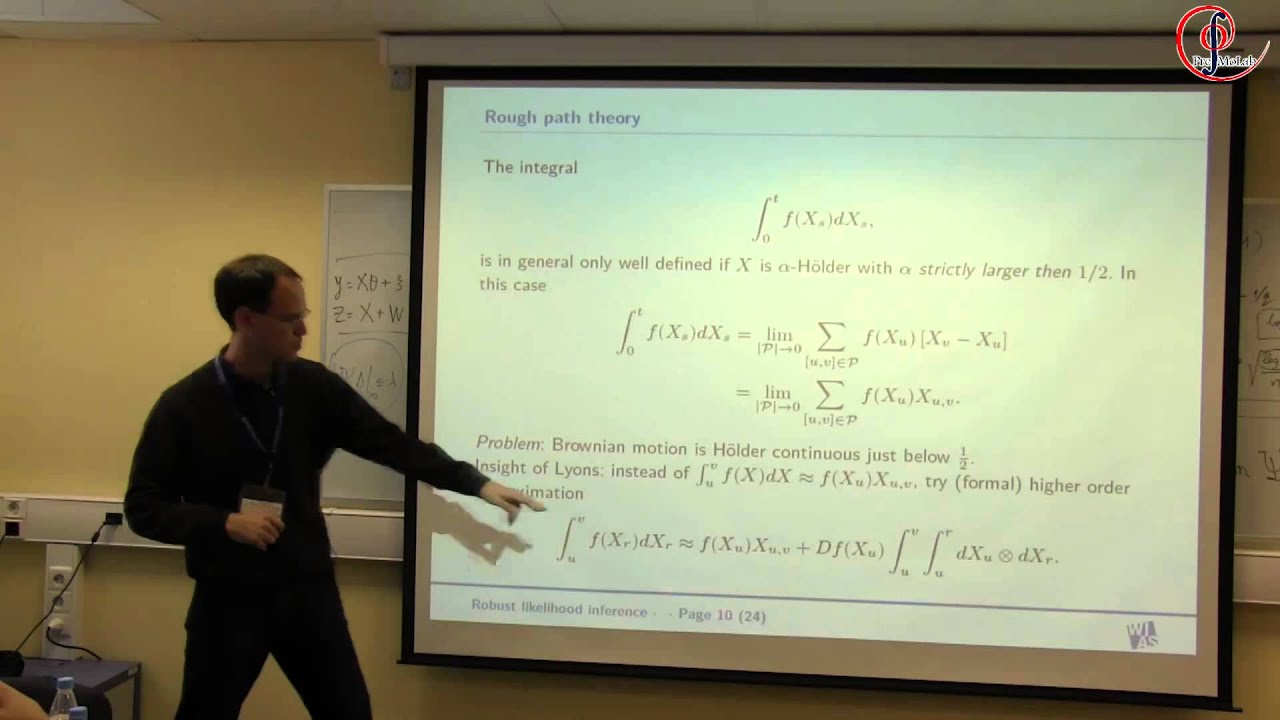 PreMoLab
Rough path theory
The integral
∫_0^t f(X_s)dX_s,
is in general only well defined if X is α-Hölder with α strictly larger then 1/2. In
this case
∫_0^t f(X_s)dX_s = lim_{|P|→0} ∑_{[u,v]∈P} f(X_u) [X_v − X_u]
= lim_{|P|→0} ∑_{[u,v]∈P} f(X_u)X_{u,v}.
Problem: Brownian motion is Hölder continuous just below 1/2.
Insight of Lyons: instead of ∫_u^v f(X)dX ≈ f(X_u)X_{u,v}, try (formal) higher order
∫_u^v f(X_r)dX_r ≈ f(X_u)X_{u,v} + Df(X_u) ∫_u^v ∫_u^r dX_u ⊗ dX_r.
Robust likelihood inference · · Page 10 (24)
WIAS
y = Xθ + ξ
Z = X + W